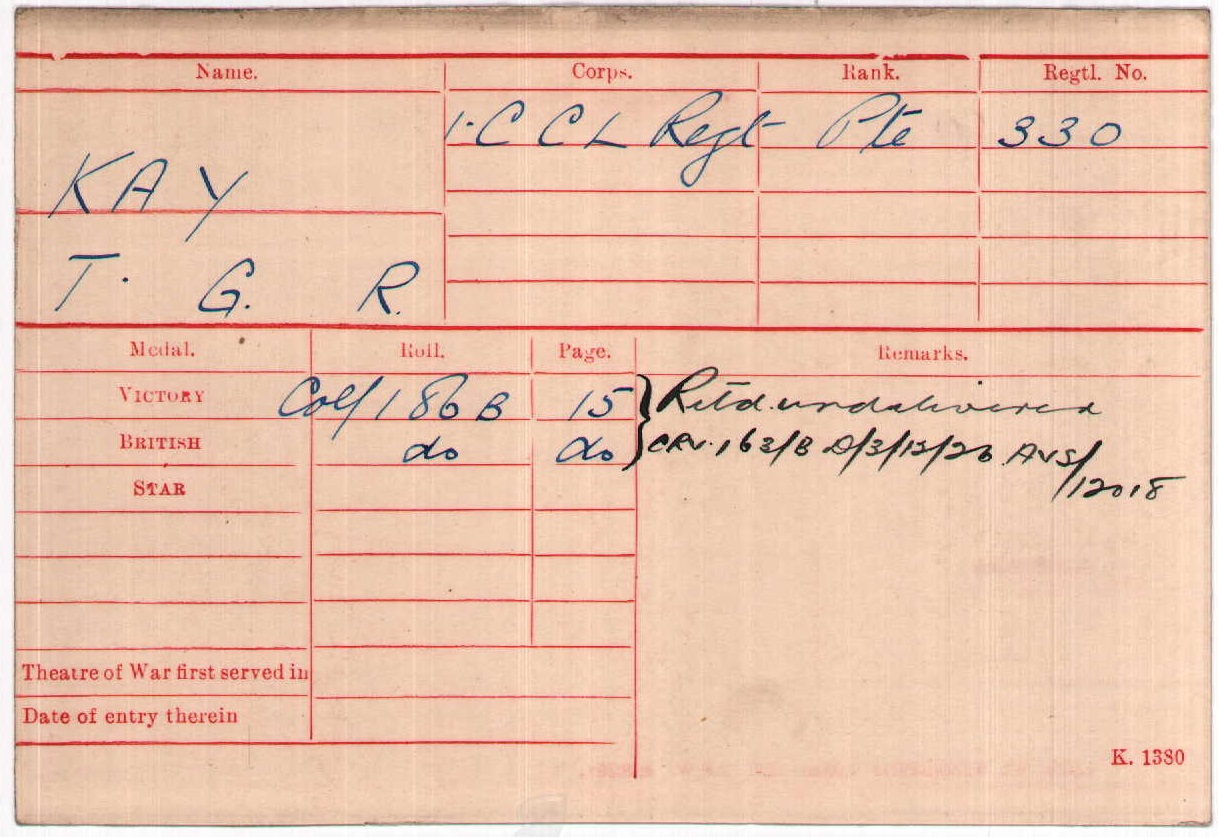 Name. Corps. Rank. Regtl. No.
1.C C L Regt Pte 330
KAY
T. G. R.
Medal. Roll. Page. Remarks.
VICTORY Col/186B 15 } Retd. undelivered
BRITISH do do CRV.163/B D/3/12/26 AVS/12018
STAR
Theatre of War first served in
Date of entry therein
K. 1380